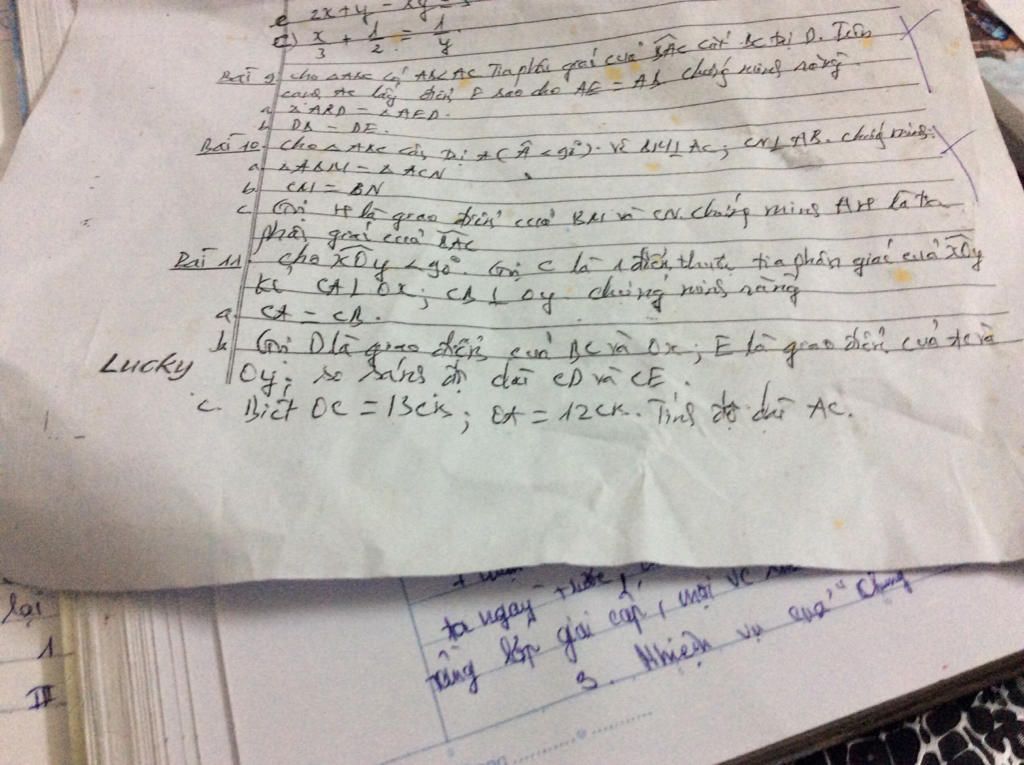 e 2x+y -
c) x/3 + 1/2 = 1/y
Bài 9 cho △ABC có AB<AC Tia phân giác của BAC cắt BC tại D. Trên
cạnh AC lấy điểm E sao cho AE = AB chứng minh rằng
a △ABD = △AED.
b DB = DE.
Bài 10 Cho △ABC cân tại A (Â < 90°). Vẽ BM⊥AC; CN⊥AB. chứng minh:
a △ABM = △ACN
b CM = BN
c Gọi H là giao điểm của BM và CN. chứng minh AH là tia
phân giác của BAC
Bài 11 cho xOy < 90°. Gọi C là 1 điểm thuộc tia phân giác của xOy
Kẻ CA⊥Ox; CB⊥Oy chứng minh rằng
a CA = CB.
b Gọi D là giao điểm của BC và Ox; E là giao điểm của AC và
Lucky
Oy; so sánh độ dài CD và CE.
c. Biết OC = 13cm; OA = 12cm. Tính độ dài AC.
ta ngay
tầng lớp giai cấp, mọi
3. Nhiệm vụ của "Chung
lại
1
III